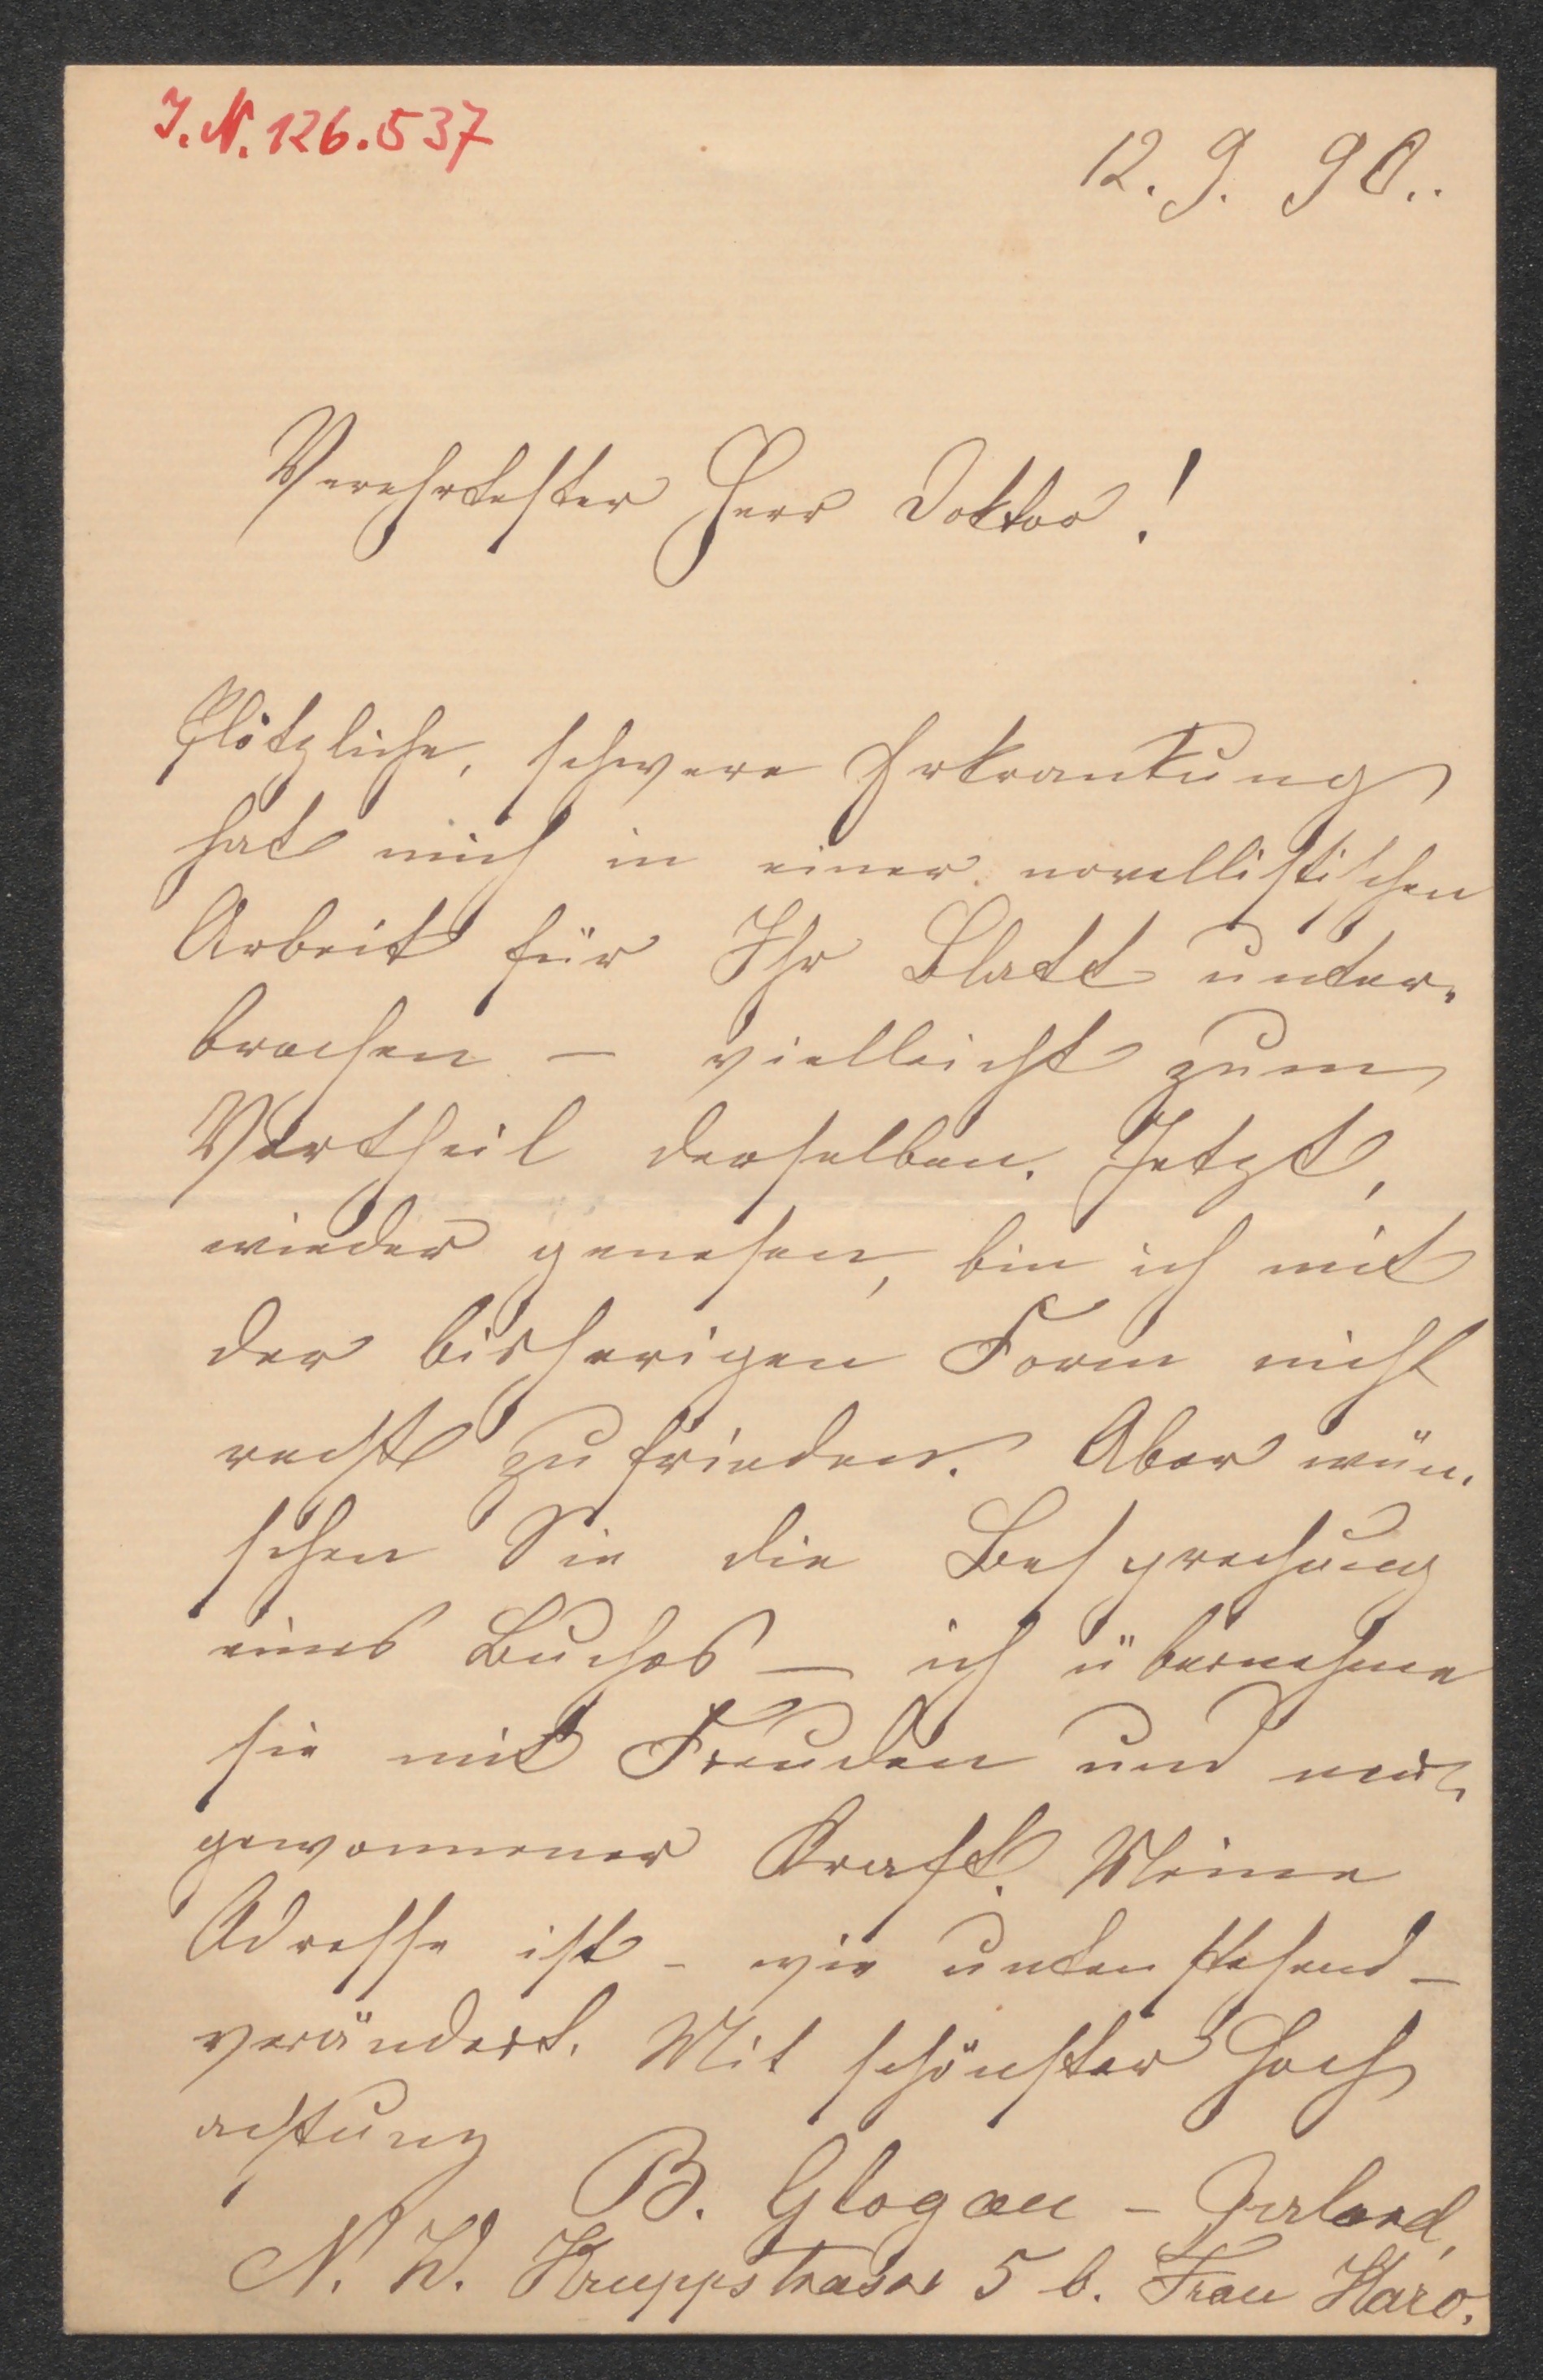 J. N. 126.537
12. 9. 90..
Verehrtester Herr Doktor!
Plötzliche, schwere Erkrankung
hat mich in einer novellistischen
Arbeit für Ihr Blatt unter-
brochen – vielleicht zum
Vortheil derselben. Jetzt,
wieder genesen, bin ich mit
der bisherigen Form nicht
recht zufrieden. Aber wün-
schen Sie die Besprechung
eines Buches – ich übernehme
sie mit Freuden und neu-
gewonnener Kraft. Meine
Adresse ist – wie untenstehend –
verändert. Mit schönster Hoch
achtung
B. Glogau –
N. W. Kruppstrasse 5 b. Frau Haro.